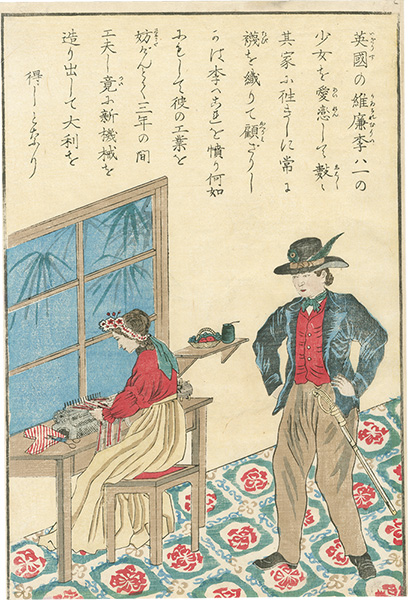 英國の維廉李ハ一の
少女を愛恋して數々
其家に往きしに常に
襪を織りて顧ざりし
かば李ハこれを憤り何如
にもして彼の工業を
妨げんとて三年の間
工夫し竟に新機械を
造り出して大利を
得しとなり